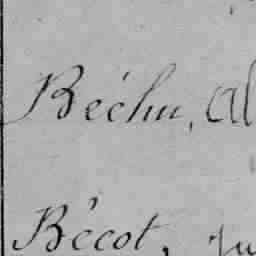 Béchu, Al
Bécot, Ju